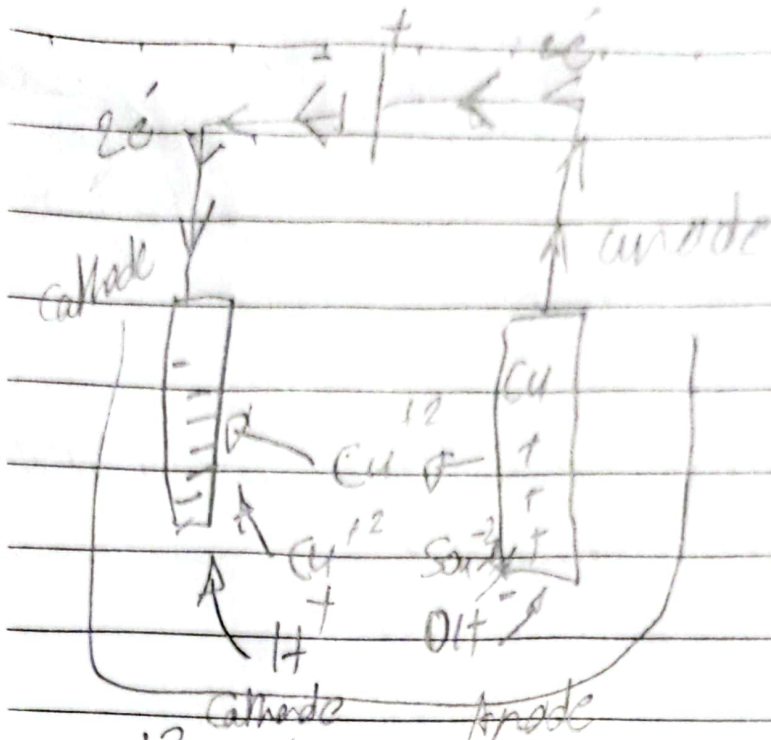 - +
2é
anode
cathode
Cu
Cu +2
Cu +2 SO4 -2
H + OH -
Cathode Anode
+2